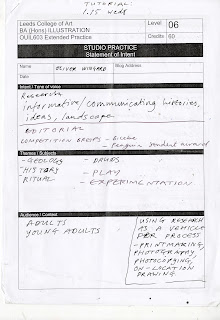 TUTORIAL:
1.15 WEDS
Leeds College of Art
BA (Hons) ILLUSTRATION
OUIL603 Extended Practice
Level 06
Credits 60
STUDIO PRACTICE
Statement of Intent
Name OLIVER WINGARD Blog Address
Date
Intent / Tone of voice
Research
informative/communicating histories,
ideas, landscape
EDITORIAL
COMPETITION BRIEFS -
- Penguin student award
Themes / Subjects
- GEOLOGY - DRUGS
HISTORY - PLAY
RITUAL - EXPERIMENTATION
Audience / Context
ADULTS
YOUNG ADULTS
USING RESEARCH
AS A VEHICLE
FOR PROCESS
- PRINTMAKING,
PHOTOGRAPHY,
PHOTOCOPYING,
ON-LOCATION
DRAWING.